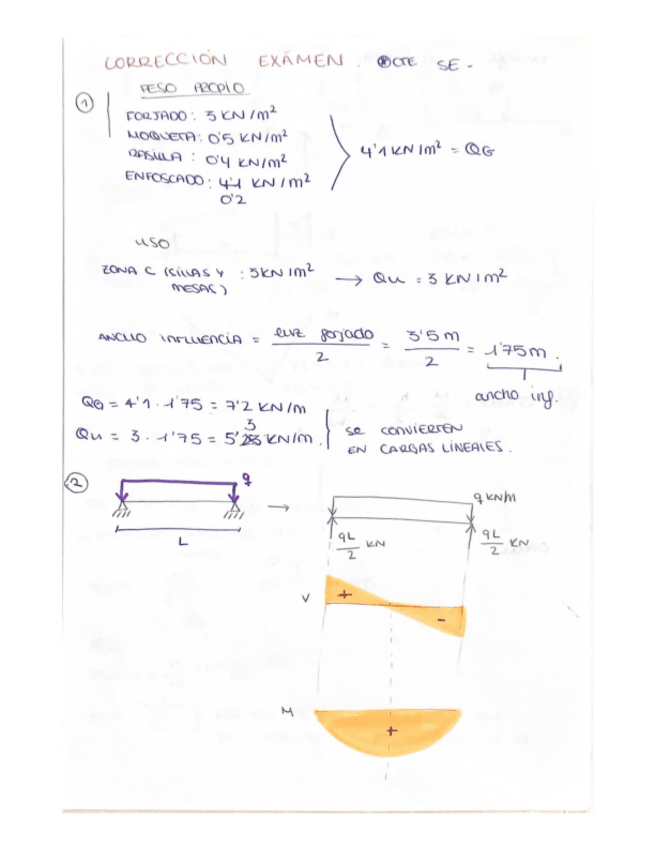 CORRECCIÓN EXÁMEN. CTE SE-
PESO PROPIO
①
FORJADO: 3 KN/m²
MOQUETA: 0'5 KN/m²
RASILLA: 0'4 KN/m²
4'1 KN/m² = QG
ENFOSCADO: KN/m²
0'2
USO
ZONA C (SILLAS Y MESAS): 3KN/m² → Qu = 3 KN/m²
ANCHO INFLUENCIA = luz forjado / 2 = 3'5 m / 2 = 1'75 m.
ancho inf.
QG = 4'1 · 1'75 = 7'2 KN/m
Qu = 3 · 1'75 = 5'3 KN/m.
se CONVIERTEN
EN CARGAS LÍNEALES.
②
q
L
→
q KN/m
qL/2 KN
qL/2 KN
V
+
-
M
+